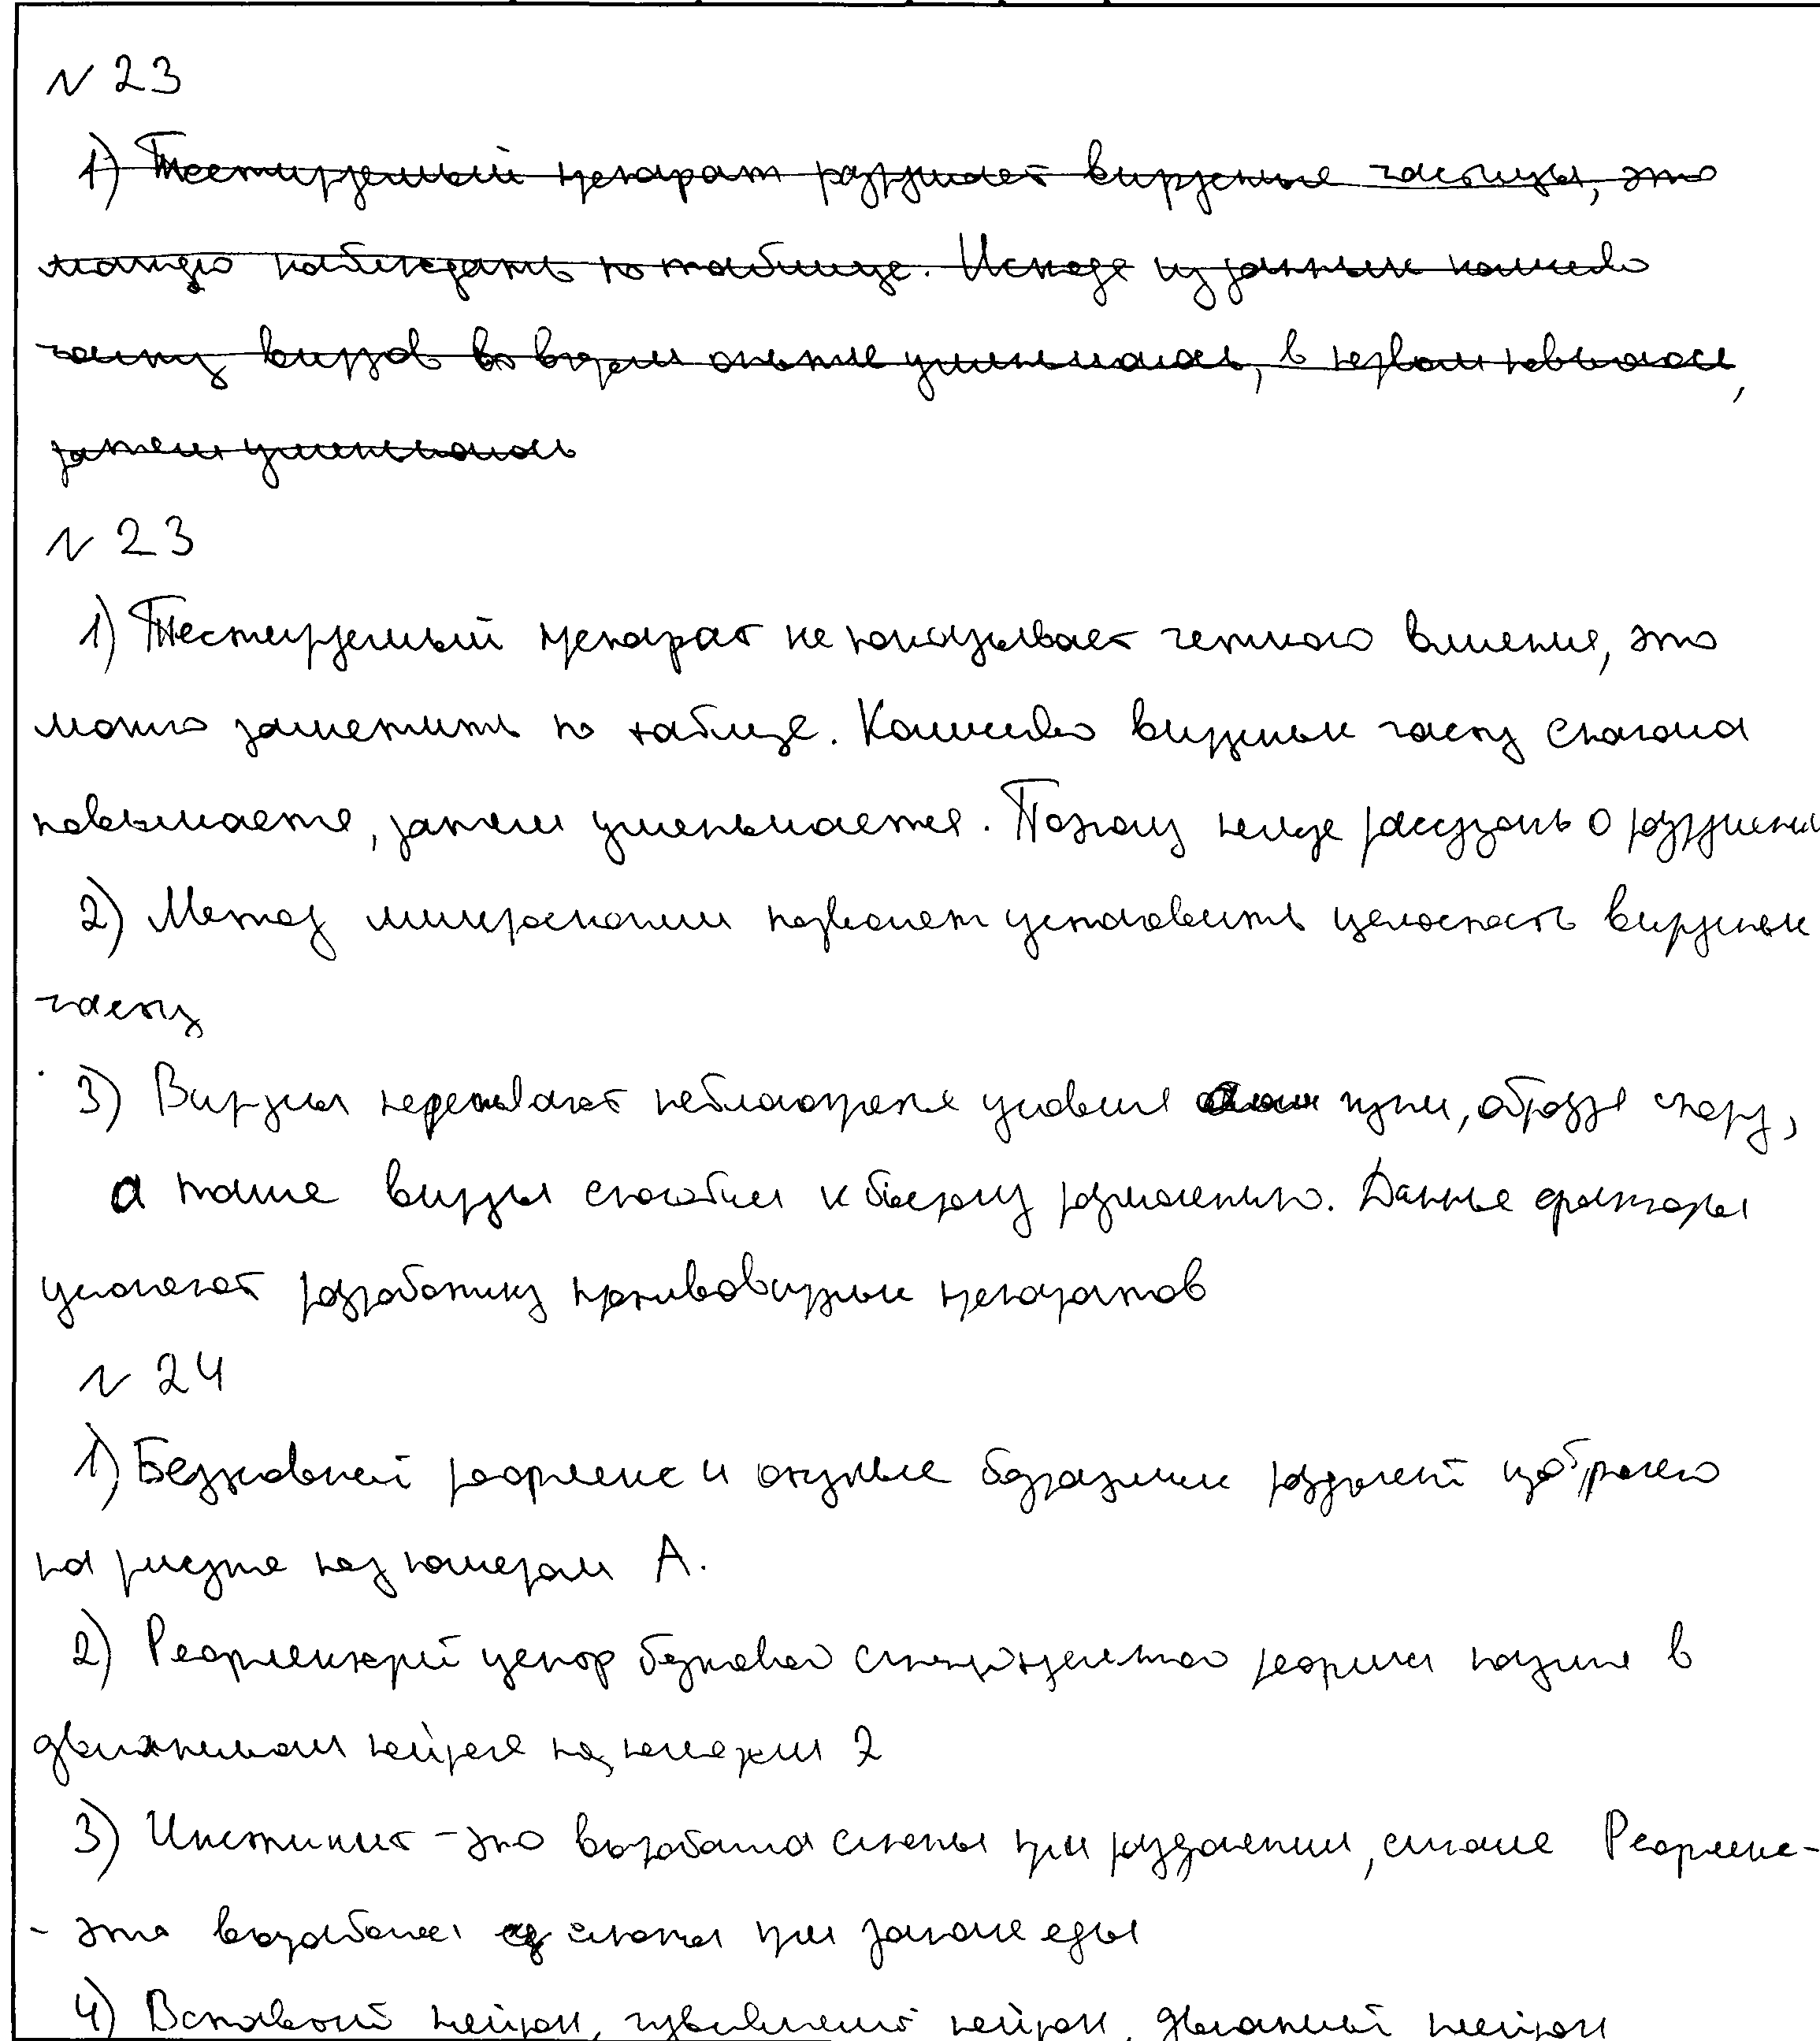 № 23
1) Тестируемый препарат разрушает вирусные частицы, это
можно наблюдать по таблице. Исходя из данных колличество
частиц вирусов во втором опыте уменьшилась, в первом повысилось,
затем уменьшилась
№ 23
1) Тестируемый препарат не показывает четкого влияния, это
можно заметить по таблице. Количество вирусных частиц сначала
повышается, затем уменьшается. Поэтому нельзя рассуждать о разрушении
2) Метод микроскопии позволяет установить целостность вирусных
частиц
3) Вирусы переживают неблагоприятные условия образуя спору,
а также вирусы способны к быстрому размножению. Данные факторы
усложняют разработку противовирусных препаратов
№ 24
1) Безусловный рефлекс и раздражитель изображено
на рисунке под номером А.
2) Рефлекторный центр безусловного слюноотделительного рефлекса в
нейроне под номером 2
3) Инстинкт - это выработка слюны при раздражении, Рефлекс-
- это выработка слюны при запахе еды
4) Вставочный нейрон, чувствительный нейрон, двигательный нейрон